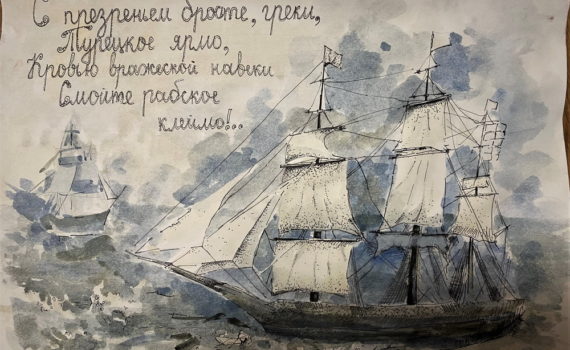 С презреньем бросьте, греки,
Турецкое ярмо,
Кровью вражеской навеки
Смойте рабское
клеймо!..